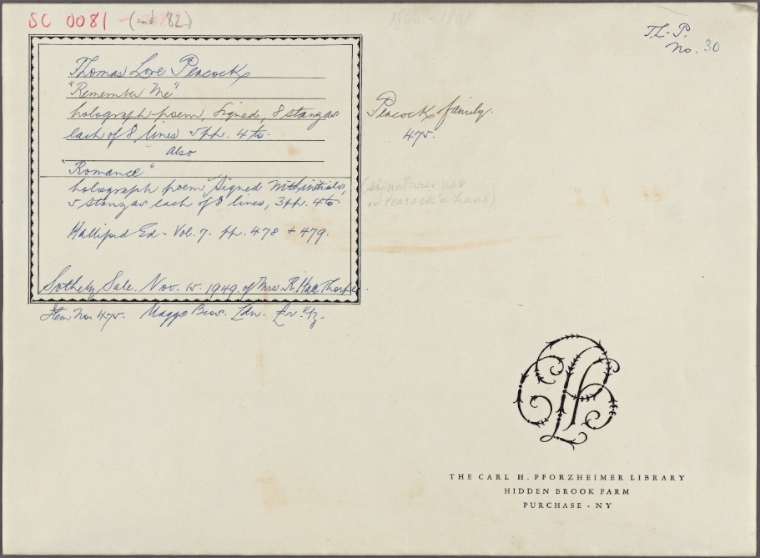 SC 0081 (and 82)
T.L.P.
No. 30
Thomas Love Peacock
"Remember Me"
holograph poem, Signed, 8 stanzas
each of 8 lines 5pp. 4to.
Also
"Romance"
holograph poem, Signed with initials,
5 stanzas each of 8 lines, 3pp. 4to
Halliford Ed - Vol. 7. pp. 478 + 479.
Sotheby Sale. Nov. 15. 1949 of Mrs. R. Hall Thorpe.
Item No. 475. Maggs Bros. Ldn.
Peacock family.
475.
(signatures not
in Peacock's hand)
THE CARL H. PFORZHEIMER LIBRARY
HIDDEN BROOK FARM
PURCHASE · NY